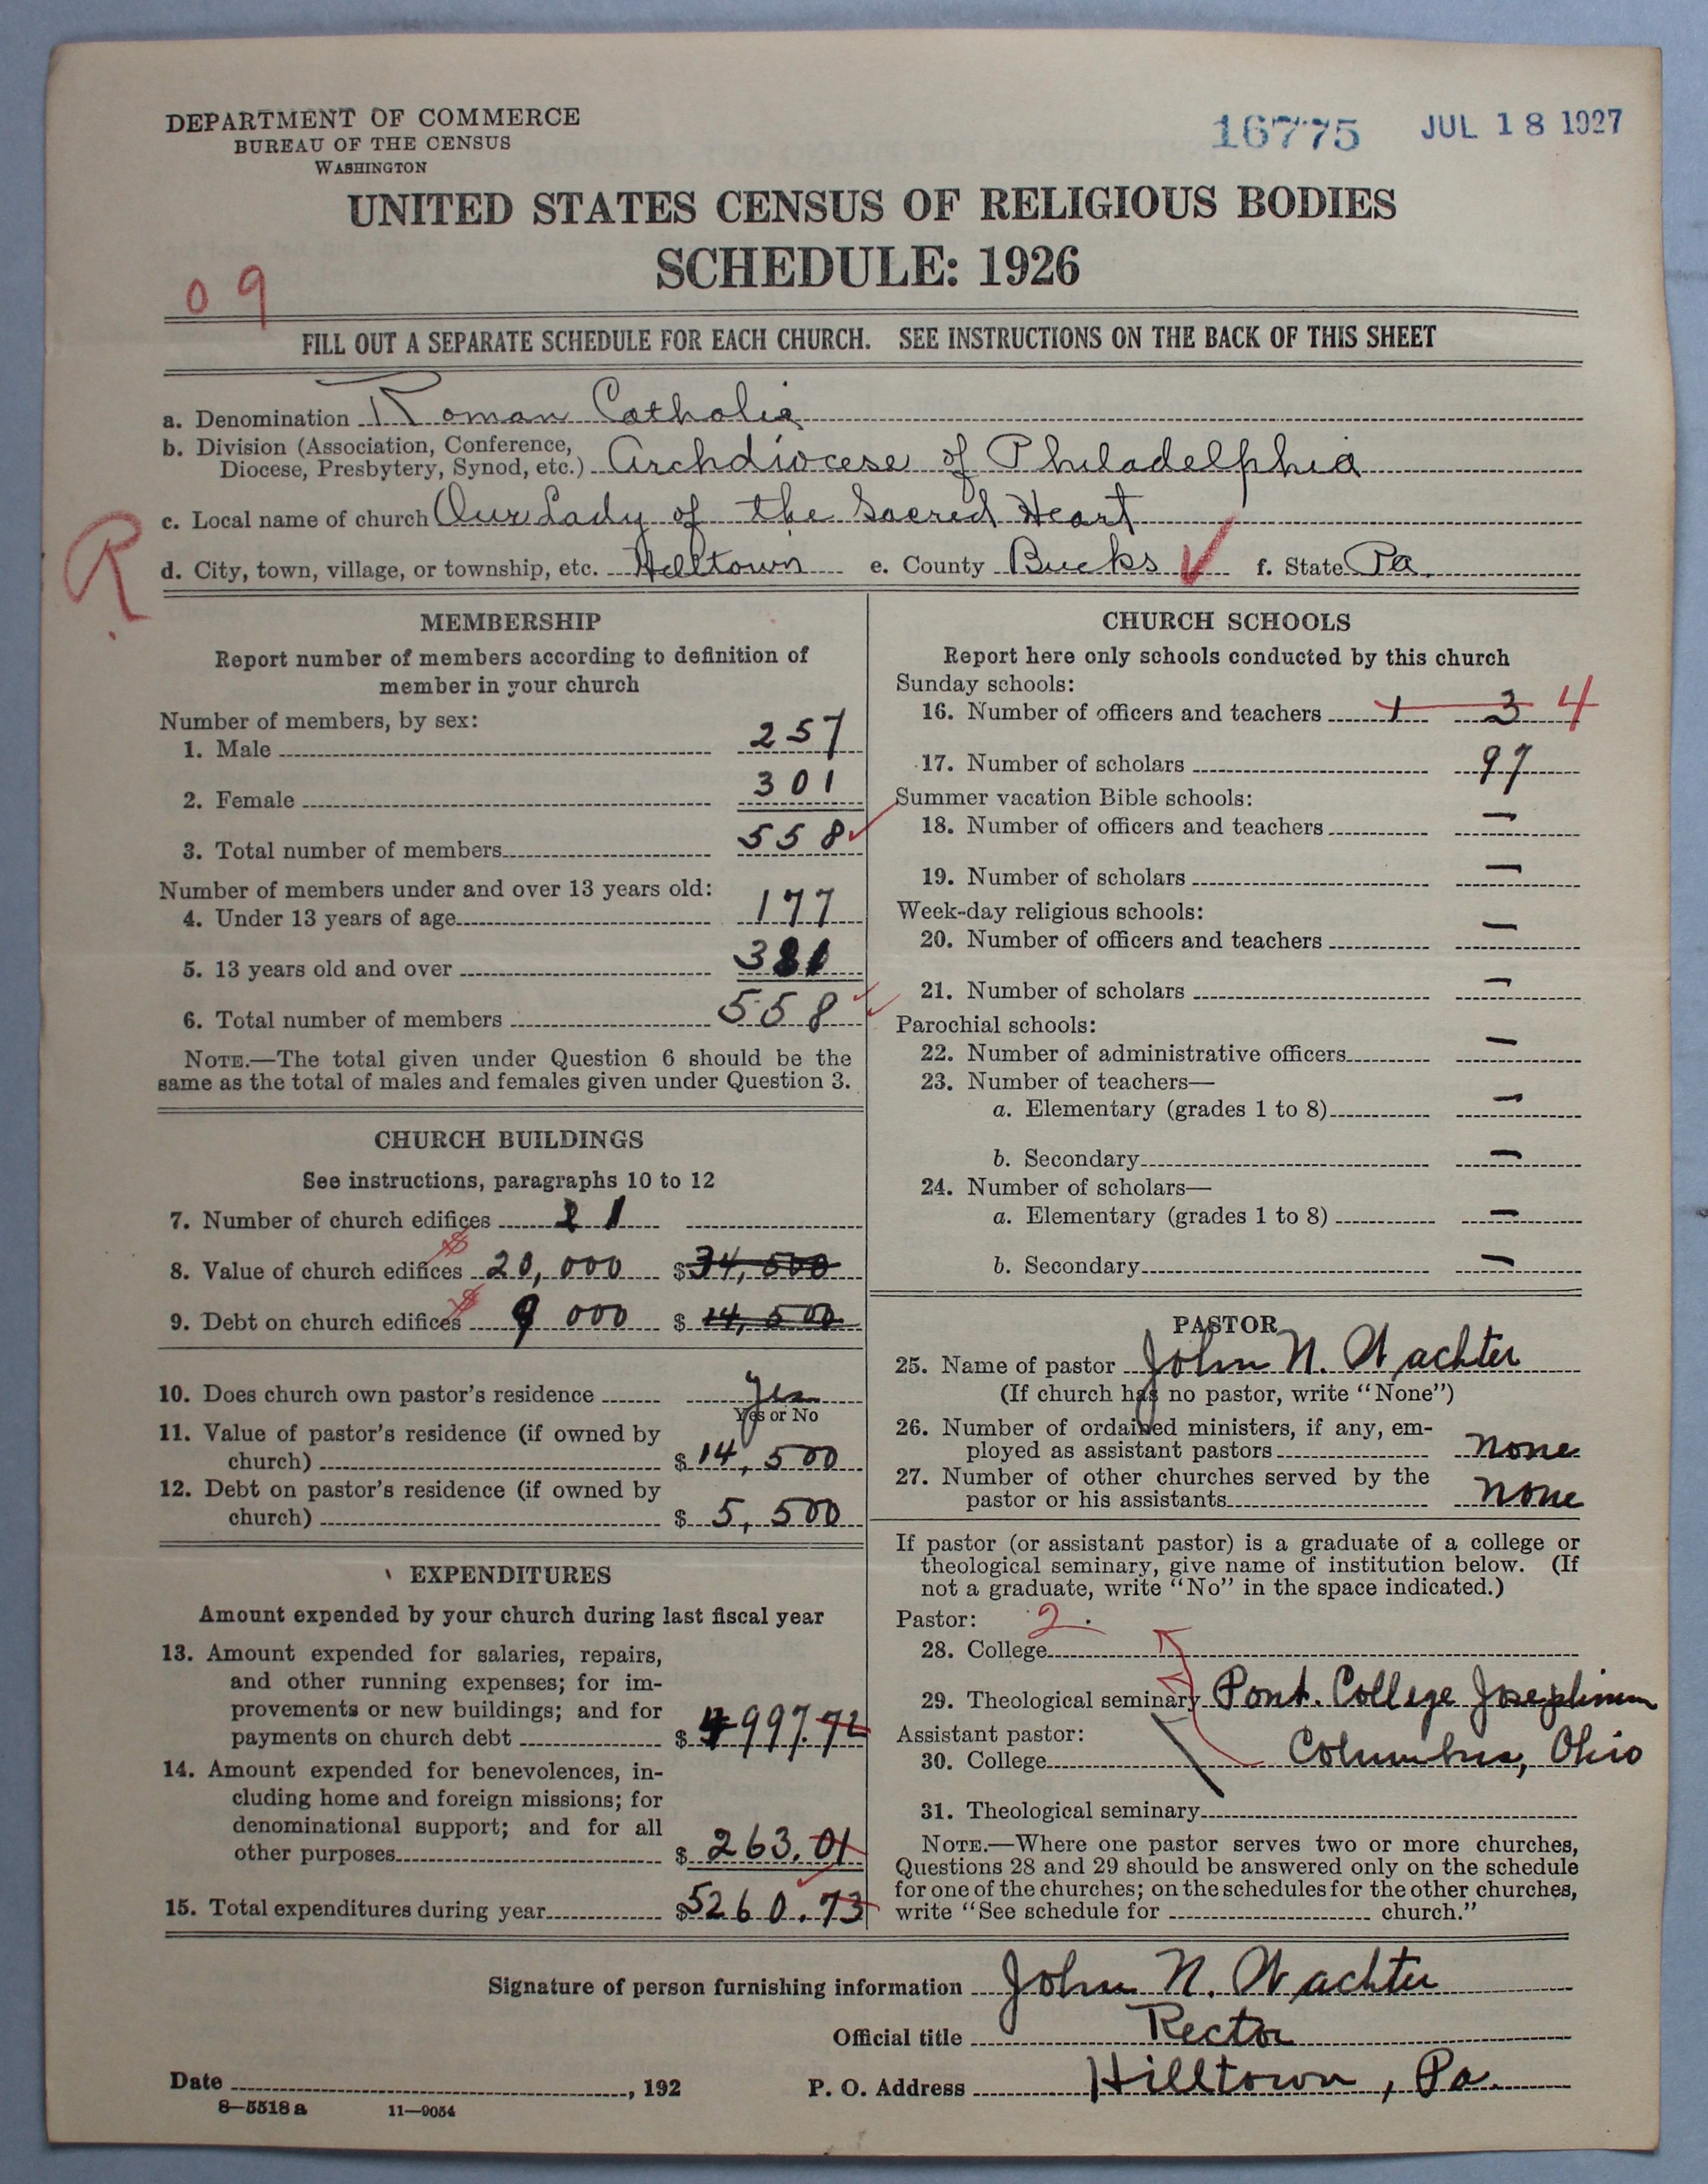 DEPARTMENT OF COMMERCE
BUREAU OF THE CENSUS
WASHINGTON
16775 JUL 18 1927
UNITED STATES CENSUS OF RELIGIOUS BODIES
SCHEDULE: 1926
09
FILL OUT A SEPARATE SCHEDULE FOR EACH CHURCH. SEE INSTRUCTIONS ON THE BACK OF THIS SHEET
a. Denomination Roman Catholic
b. Division (Association, Conference,
Diocese, Presbytery, Synod, etc.) Archdiocese of Philadelphia
c. Local name of church Our Lady of the Sacred Heart
R
d. City, town, village, or township, etc. Hilltown e. County Bucks f. State Pa.
MEMBERSHIP
Report number of members according to definition of
member in your church
Number of members, by sex:
1. Male 257
2. Female 301
3. Total number of members 558
Number of members under and over 13 years old:
4. Under 13 years of age 177
5. 13 years old and over 381
6. Total number of members 558
NOTE.—The total given under Question 6 should be the
same as the total of males and females given under Question 3.
CHURCH BUILDINGS
See instructions, paragraphs 10 to 12
7. Number of church edifices 2 1
8. Value of church edifices $ 20,000 $ 34,500
9. Debt on church edifices $ 9 000 $ 14,500
10. Does church own pastor's residence yes
Yes or No
11. Value of pastor's residence (if owned by
church) $ 14,500
12. Debt on pastor's residence (if owned by
church) $ 5,500
EXPENDITURES
Amount expended by your church during last fiscal year
13. Amount expended for salaries, repairs,
and other running expenses; for im-
provements or new buildings; and for
payments on church debt $ 4997.72
14. Amount expended for benevolences, in-
cluding home and foreign missions; for
denominational support; and for all
other purposes $ 263.01
15. Total expenditures during year $ 5260.73
CHURCH SCHOOLS
Report here only schools conducted by this church
Sunday schools:
16. Number of officers and teachers 1 3 4
17. Number of scholars 97
Summer vacation Bible schools:
18. Number of officers and teachers —
19. Number of scholars —
Week-day religious schools:
20. Number of officers and teachers —
21. Number of scholars —
Parochial schools:
22. Number of administrative officers —
23. Number of teachers—
a. Elementary (grades 1 to 8) —
b. Secondary —
24. Number of scholars—
a. Elementary (grades 1 to 8) —
b. Secondary —
PASTOR
25. Name of pastor John N. Wachter
(If church has no pastor, write "None")
26. Number of ordained ministers, if any, em-
ployed as assistant pastors none
27. Number of other churches served by the
pastor or his assistants none
If pastor (or assistant pastor) is a graduate of a college or
theological seminary, give name of institution below. (If
not a graduate, write "No" in the space indicated.)
Pastor: 2.
28. College
29. Theological seminary Pont. College Josephinum
Assistant pastor:
30. College Columbus, Ohio
31. Theological seminary
NOTE.—Where one pastor serves two or more churches,
Questions 28 and 29 should be answered only on the schedule
for one of the churches; on the schedules for the other churches,
write "See schedule for church."
Signature of person furnishing information John N. Wachter
Official title Rector
Date , 192 P. O. Address Hilltown, Pa.
8—5518 a 11—9054